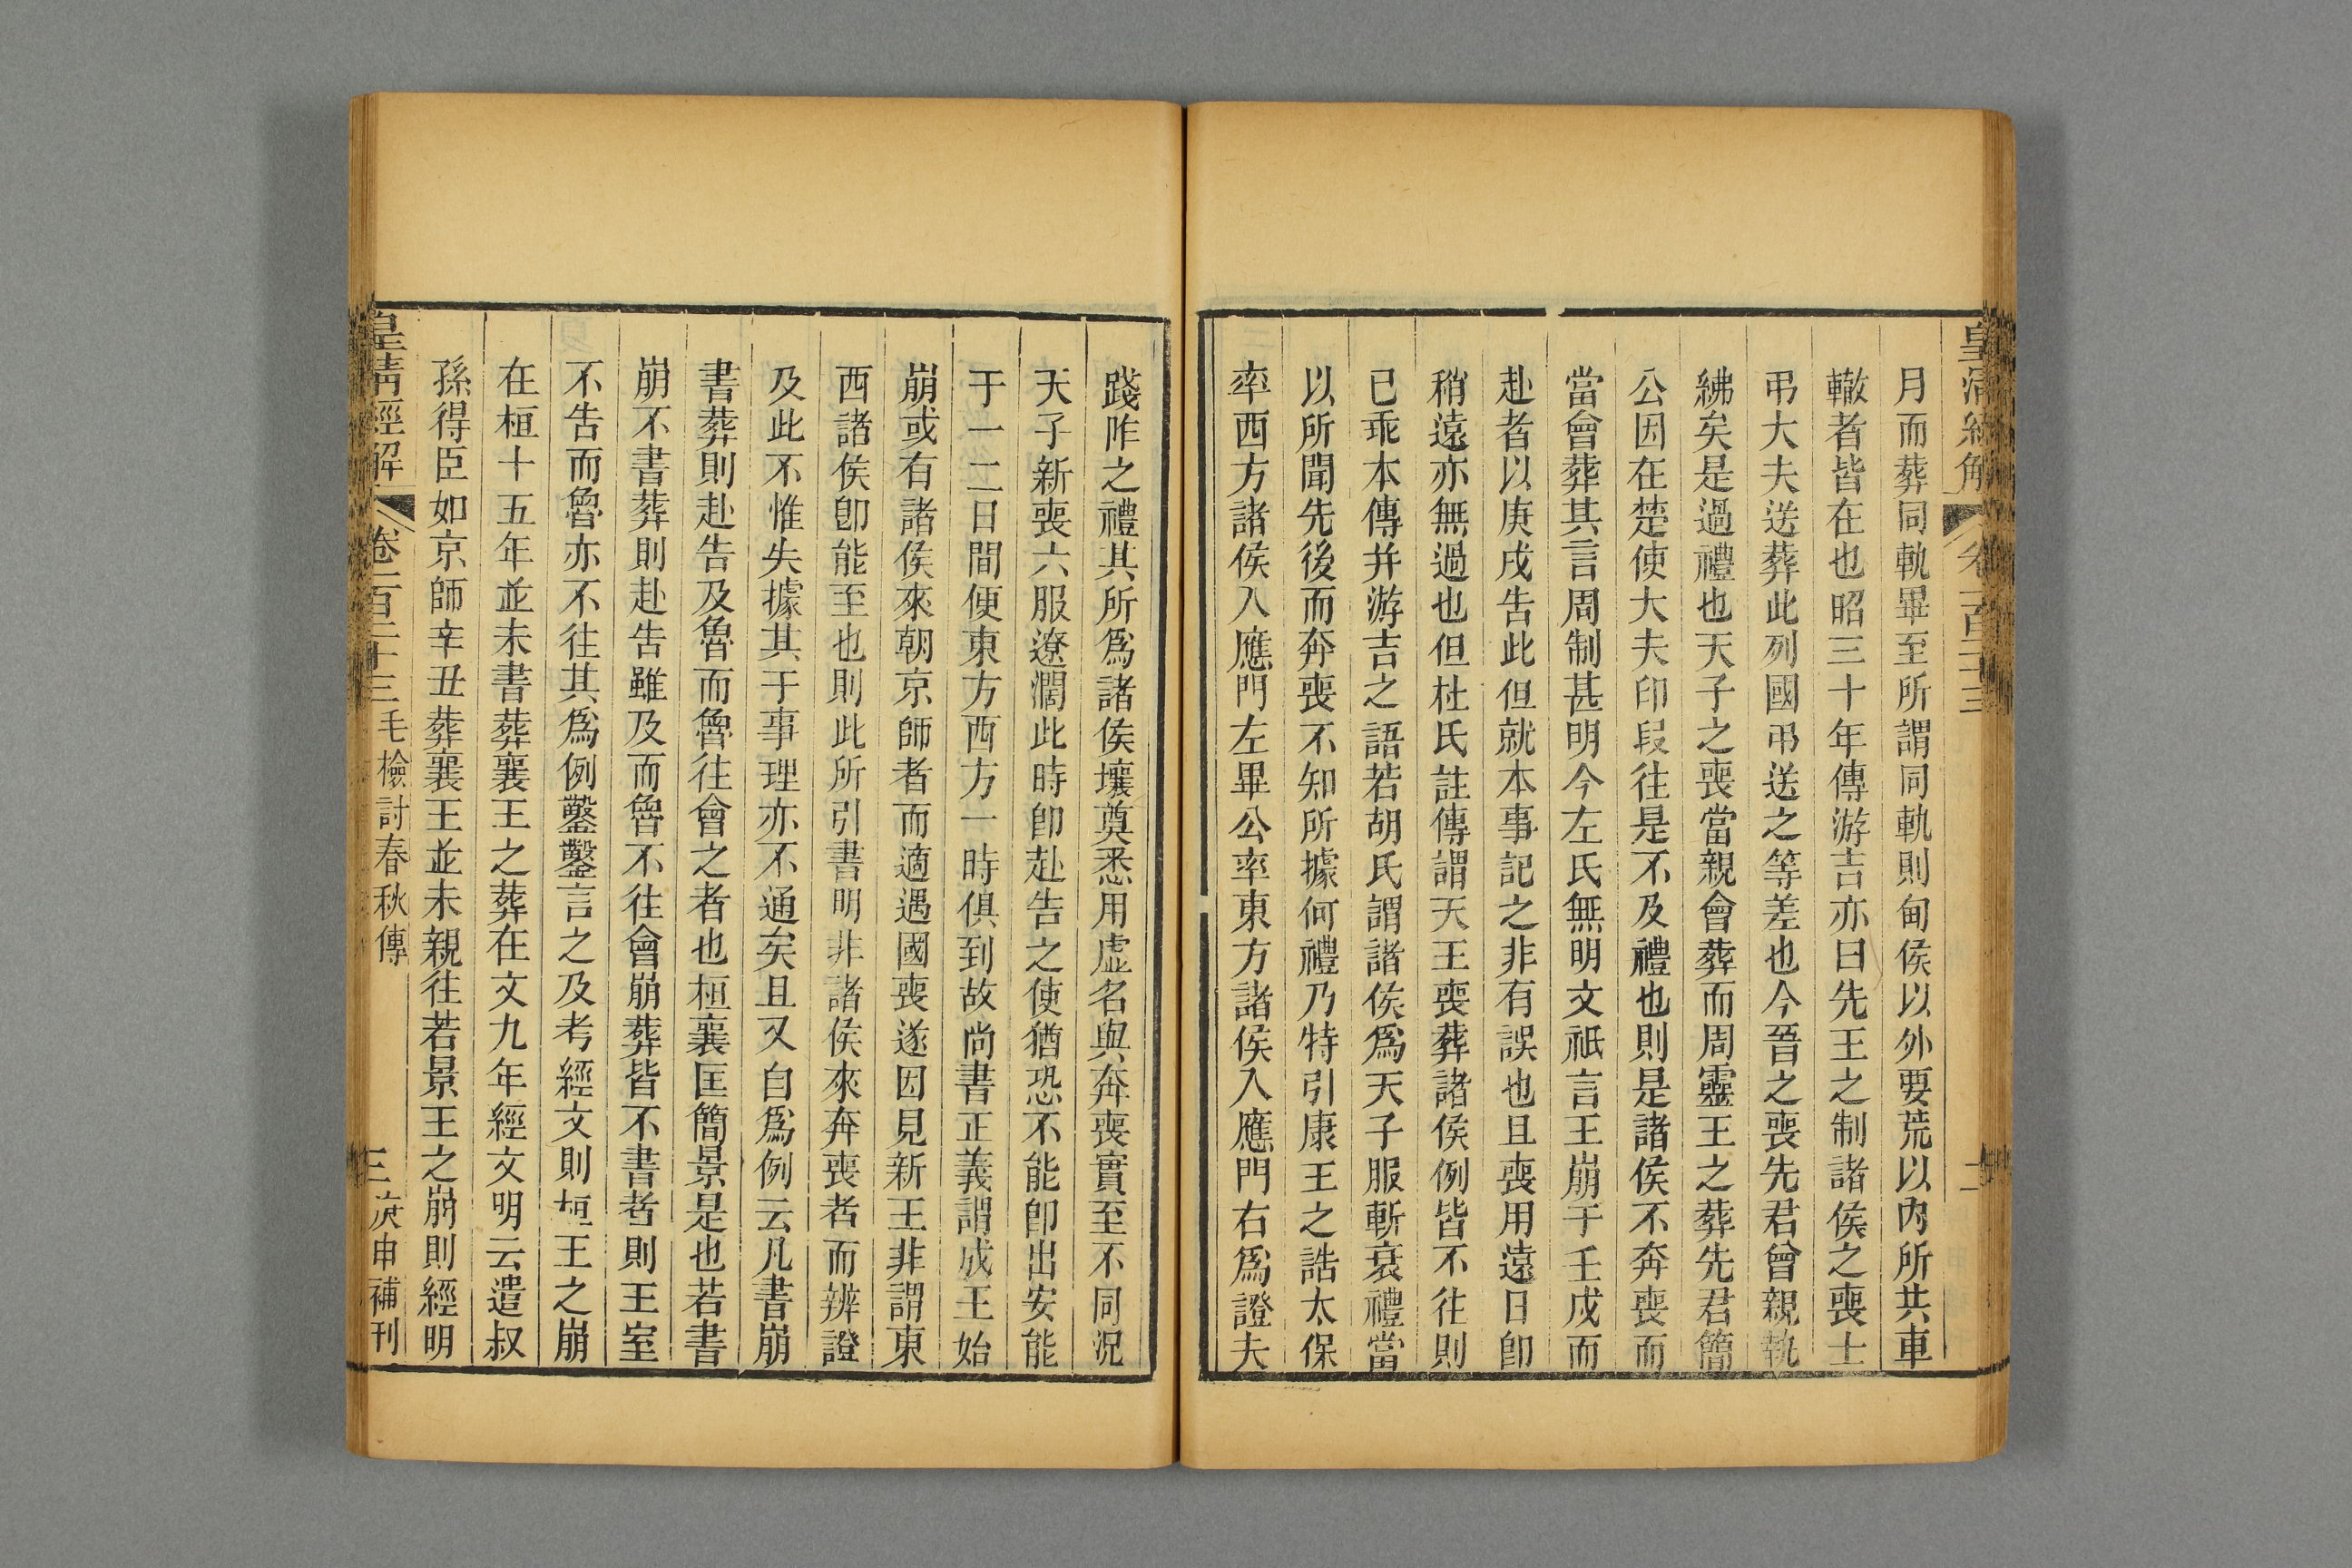 皇清經解
卷一百二十三
二
月而葬同軌畢至所謂同軌則甸侯以外要荒以內所共車
轍者皆在也昭三十年傳游吉亦曰先王之制諸侯之喪士
弔大夫送葬此列國弔送之等差也今晉之喪先君曾親執
紼矣是過禮也天子之喪當親會葬而周靈王之葬先君簡
公因在楚使大夫印段往是不及禮也則是諸侯不奔喪而
當會葬其言周制甚明今左氏無明文祇言王崩于壬戌而
赴者以庚戌告此但就本事記之非有誤也且喪用遠日卽
稍遠亦無過也但杜氏註傳謂天王喪葬諸侯例皆不往則
已乖本傳幷游吉之語若胡氏謂諸侯爲天子服斬衰禮當
以所聞先後而奔喪不知所據何禮乃特引康王之誥太保
率西方諸侯入應門左畢公率東方諸侯入應門右爲證夫
踐阼之禮其所爲諸侯壤奠悉用虛名與奔喪實至不同況
天子新喪六服遼濶此時卽赴告之使猶恐不能卽出安能
于一二日間便東方西方一時俱到故尚書正義謂成王始
崩或有諸侯來朝京師者而適遇國喪遂因見新王非謂東
西諸侯卽能至也則此所引書明非諸侯來奔喪者而辨證
及此不惟失據其于事理亦不通矣且又自爲例云凡書崩
書葬則赴告及魯而魯往會之者也桓襄匡簡景是也若書
崩不書葬則赴告雖及而魯不往會崩葬皆不書者則王室
不告而魯亦不往其爲例鑿鑿言之及考經文則桓王之崩
在桓十五年並未書葬襄王之葬在文九年經文明云遣叔
孫得臣如京師辛丑葬襄王並未親往若景王之崩則經明
皇清經解
卷一百二十三
毛檢討春秋傳
三
庚申補刊